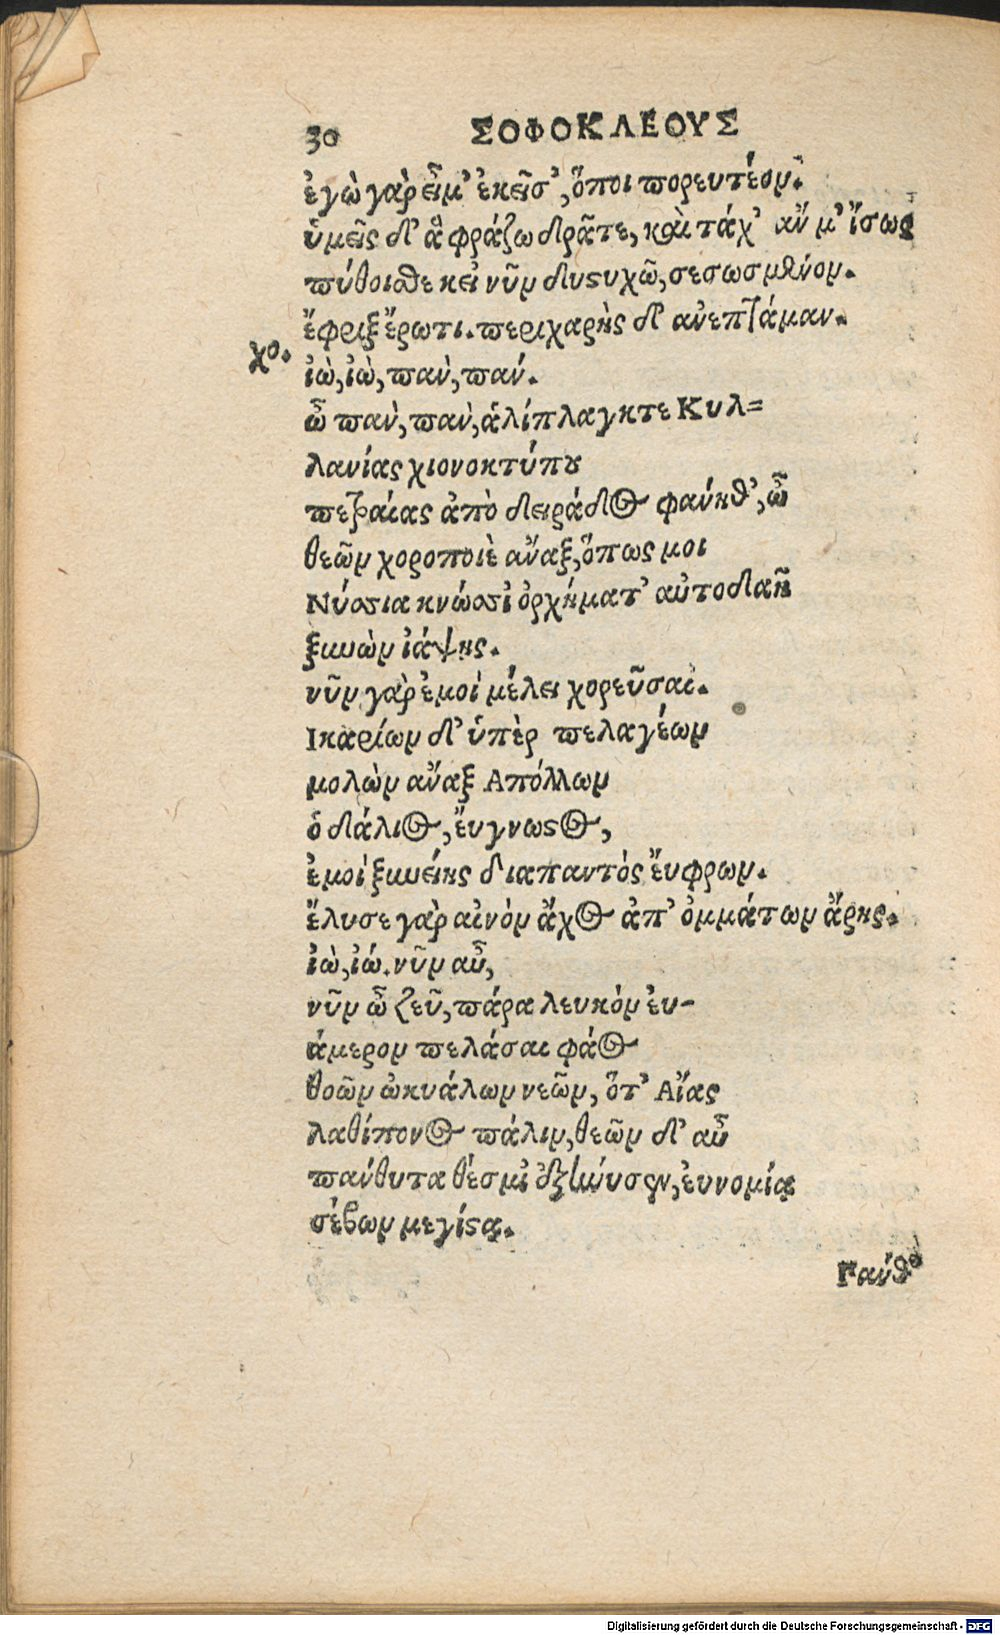 30 ΣΟΦΟΚΛΕΟΥΣ
ἐγὼ γαρ εἶμ’ ἐκεῖσ’, ὅποι πορευτέον.
ὑμεῖς δ’ ἃ φράζω δρᾶτε, καὶ τάχ’ αν μ’ ἴσως
πύθοισθε κεἰ νῦν δυστυχῶ, σεσωσμένον.
χο. ἔφριξ ἔρωτι. περιχαρὴς δ’ ἀνεπτάμαν.
ἰὼ, ἰὼ, παν, παν.
ὦ παν, παν, ἁλίπλαγκτε Κυλ=
λανίας χιονοκτύπου
πετραίας ἀπὸ δειράδος φάνηθ’, ὦ
θεῶν χοροποιὲ ἄναξ, ὅπως μοι
Νύσσια κνώσσι ὀρχήματ’ αὐτοδαῆ
ξυνὼν ἰάψης.
νῦν γὰρ ἐμοὶ μέλει χορεῦσαι.
Ικαρίων δ’ ὑπὲρ πελαγέων
μολὼν ἄναξ Απόλλων
ὁ δάλιος, ἔυγνωστος,
ἐμοὶ ξυνείης διαπαντὸς ἔυφρων.
ἔλυσε γὰρ αἰνὸν ἄχος ἀπ’ ὀμμάτων ἄρης.
ἰὼ, ἰώ. νῦν αὖ,
νῦν ὦ ζεῦ, πάρα λευκὸν ἐυ-
άμερον πελάσαι φάος
θοῶν ὠκυάλων νεῶν, ὅτ’ Αἴας
λαθίπονος πάλιν, θεῶν δ’ αὖ
πάνθυτα θέσμι ἐξήνυσεν, ἐυνομίᾳ
σέβων μεγίστᾳ.
Γαύθ’
Digitalisierung gefördert durch die Deutsche Forschungsgemeinschaft - DFG